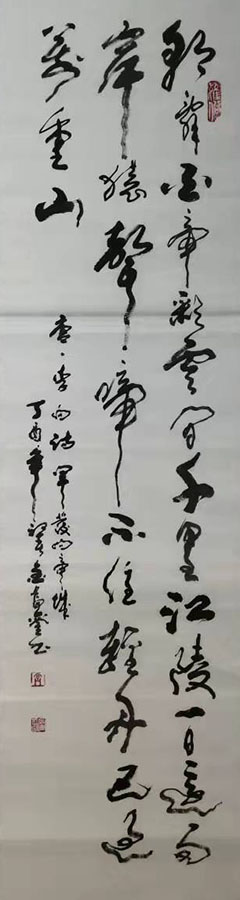 朝辭白帝彩雲間千里江陵一日還兩
岸猿聲啼不住輕舟已過
萬重山
唐·李白詩早發白帝城
丁酉年